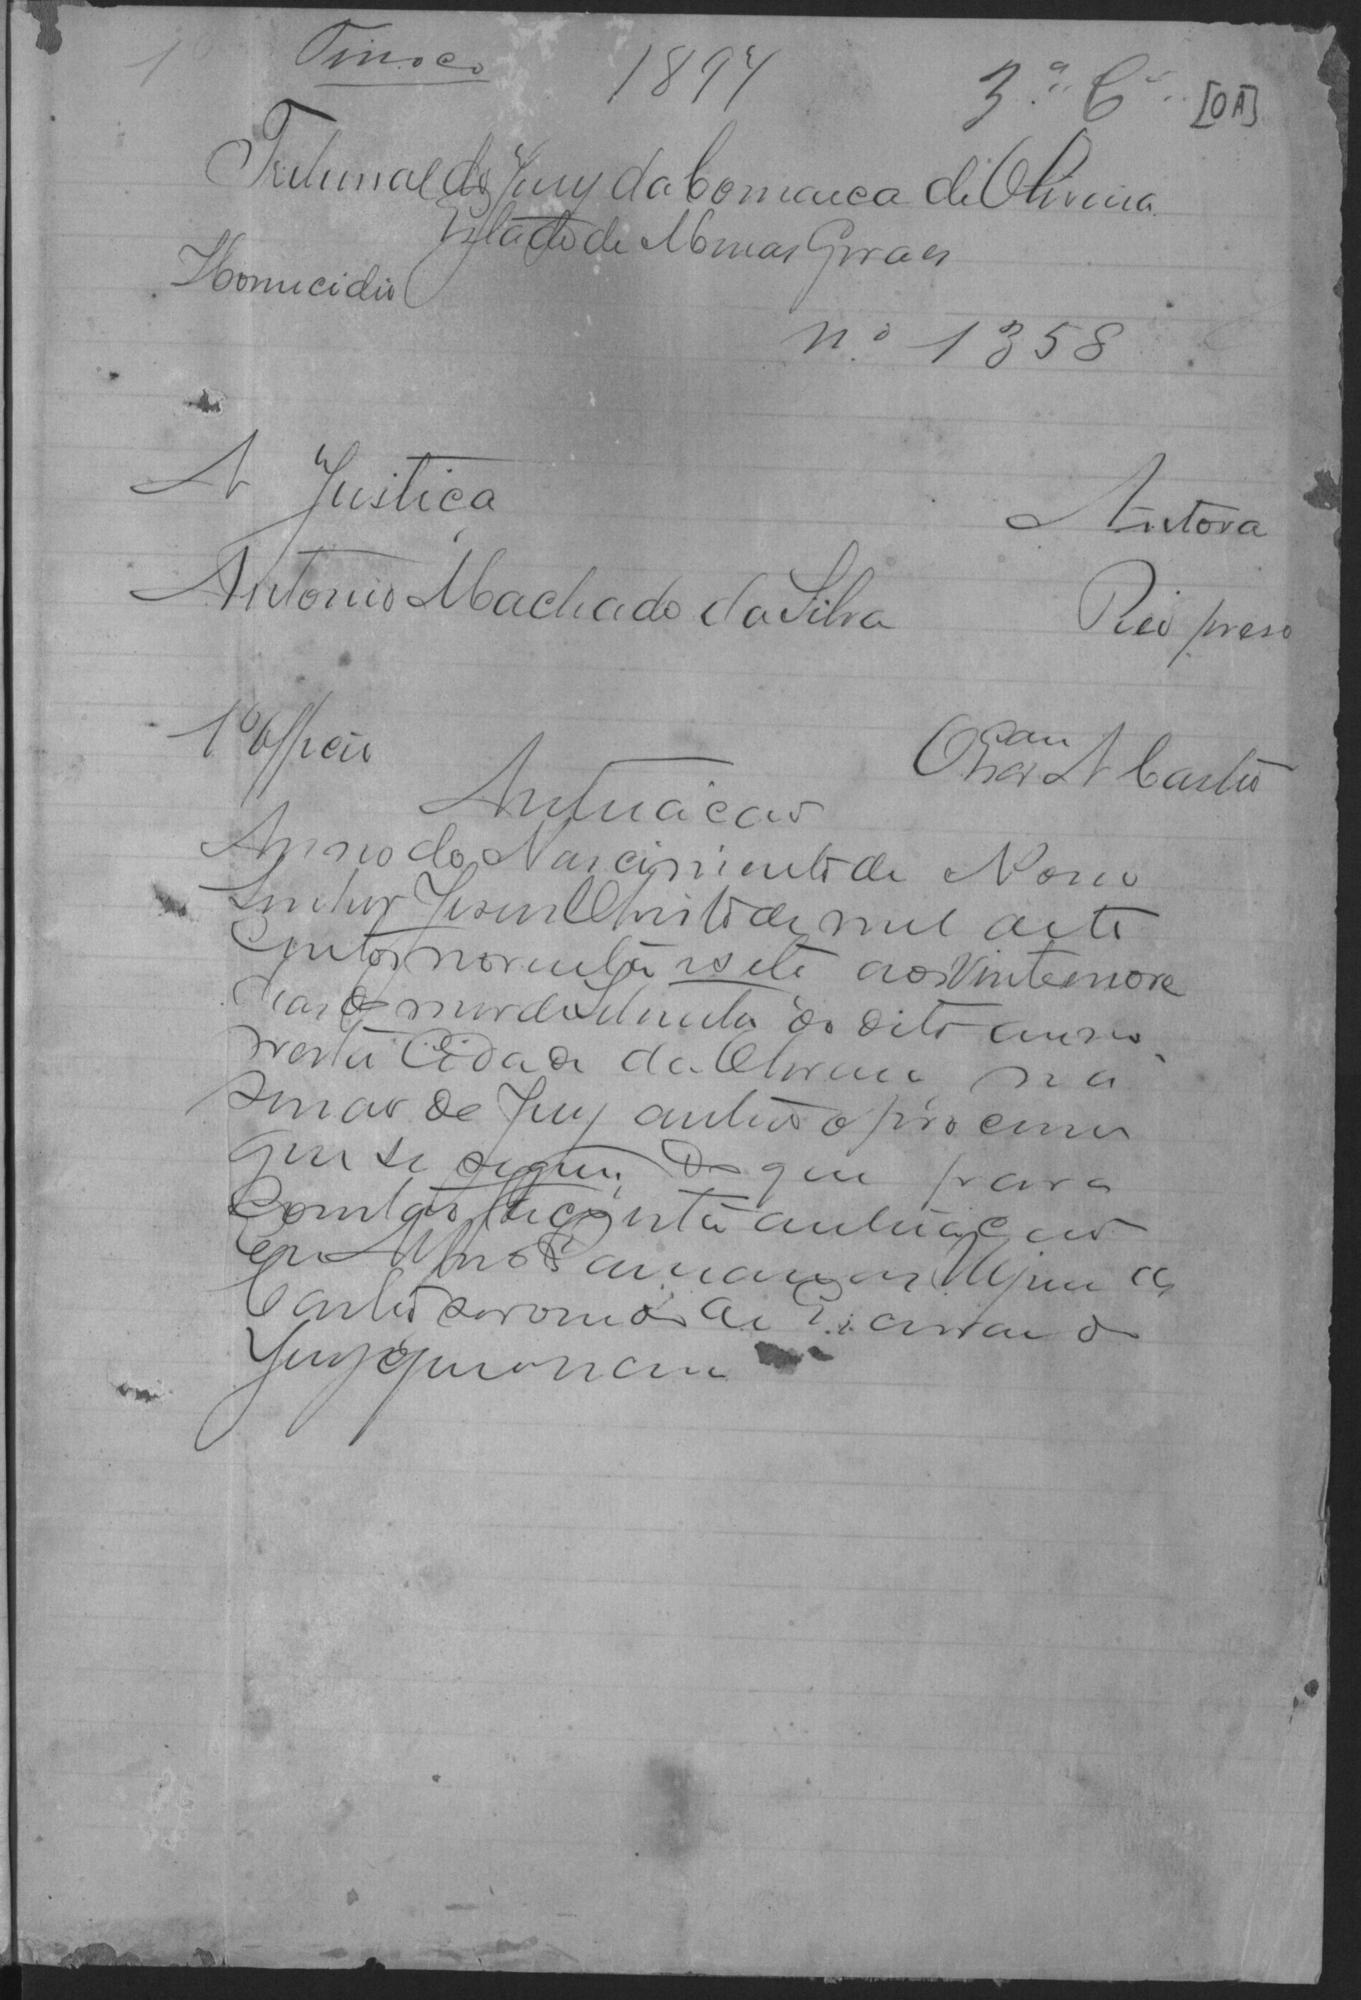 Tinoco 1897 3.ª C.ª [OA]
Tribunal do Jury da Comarca de Oliveira
Estado de Minas Geraes
Homicidio
n.º 1358
A Justiça Autora
Antonio Machado da Silva Réo preso
1º Officio Castro
Autuação
Anno do Nascimento de Nosso
Senhor Jesus Christo de mil oito
centos noventa e sete aos vinte e nove
dias do mez de do dito anno
nesta Cidade de Oliveira na
de Jury autuo o processo
que se segue; Do que para
constar faço esta autuação
Eu
Castro
Jury que o